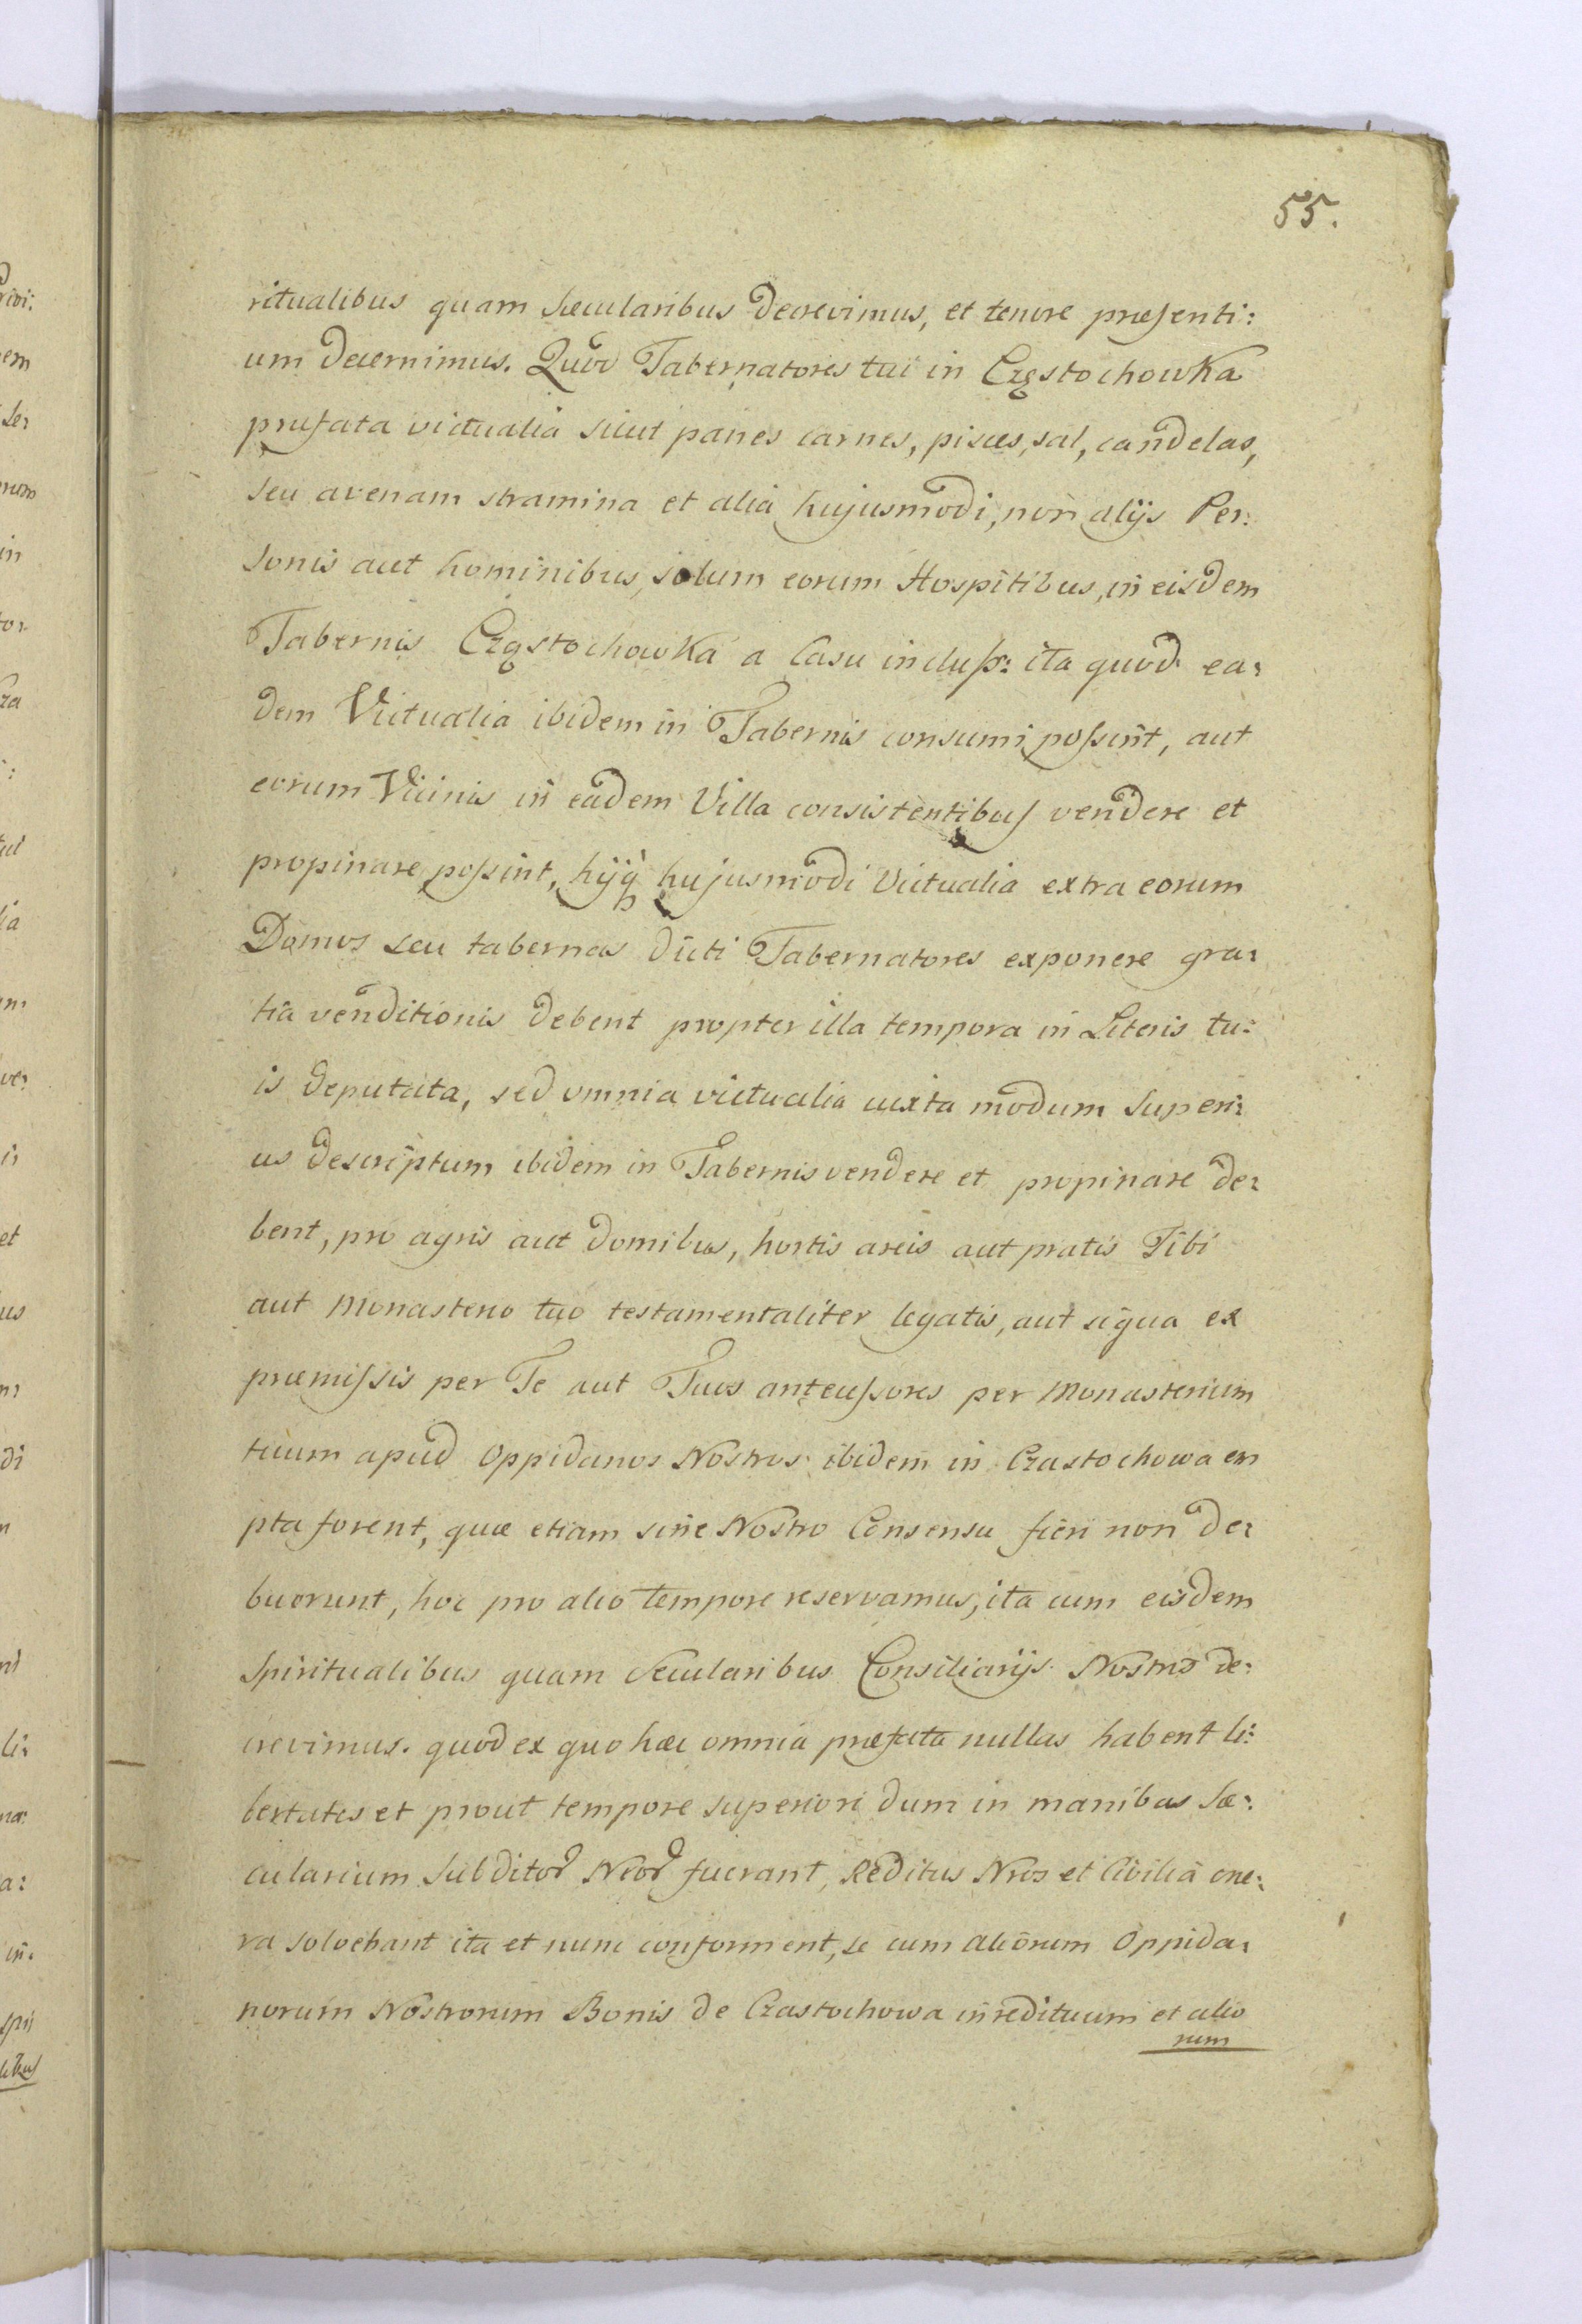 55.
ritualibus quam Sæcularibus decrevimus, et tenore præsenti:
um decernimus. Quod Tabernatores tui in Częstochowka
præfata victualia sicut panes carnes, pisces, sal, candelas,
seu avenam stramina et alia hujusmodi, non alijs Per:
sonis aut hominibus, solum eorum Hospitibus, in eisdem
Tabernis Cząstochowka a Casu inclusis: ita quod ea:
dem Victualia ibidem in Tabernis consumi possint, aut
eorum Vicinis in eadem Villa consistentibus vendere et
propinare possint, hujusmodi Victualia extra eorum
Domos seu tabernas dicti Tabernatores exponere gra:
tia venditionis debent propter illa tempora in Literis tu:
is deputata, sed omnia victualia iuxta modum Superi:
us descriptum ibidem in Tabernis vendere et propinare de:
bent, pro agris aut domibus, hortis areis aut pratis Tibi
aut Monasterio tuo testamentaliter legatis, aut siqua ex
præmissis per Te aut Tuos antecessores per Monasterium
tuum apud Oppidanos Nostros ibidem in Czastochowa em
pta forent, quæ etiam sine Nostro Consensu fieri non de:
buerunt, hoc pro alio tempore reservamus, ita cum eisdem
Spiritualibus quam Secularibus Consiliarijs Nostris de:
crevimus. quod ex quo hæc omnia præfata nullas habent li:
bertates et prout tempore superiori dum in manibus Sæ:
cularium Subditor Nror fuerant, Reditus Nros et Civilia one:
ra solvebant ita et nunc conforment, se cum aliorum Oppida:
norum Nostrorum Bonis de Czastochowa in redituum et alio
rum